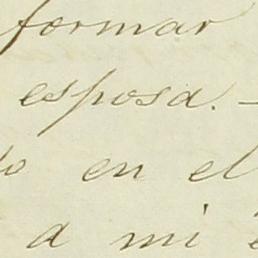 formar
esposa. —
en el
a mi